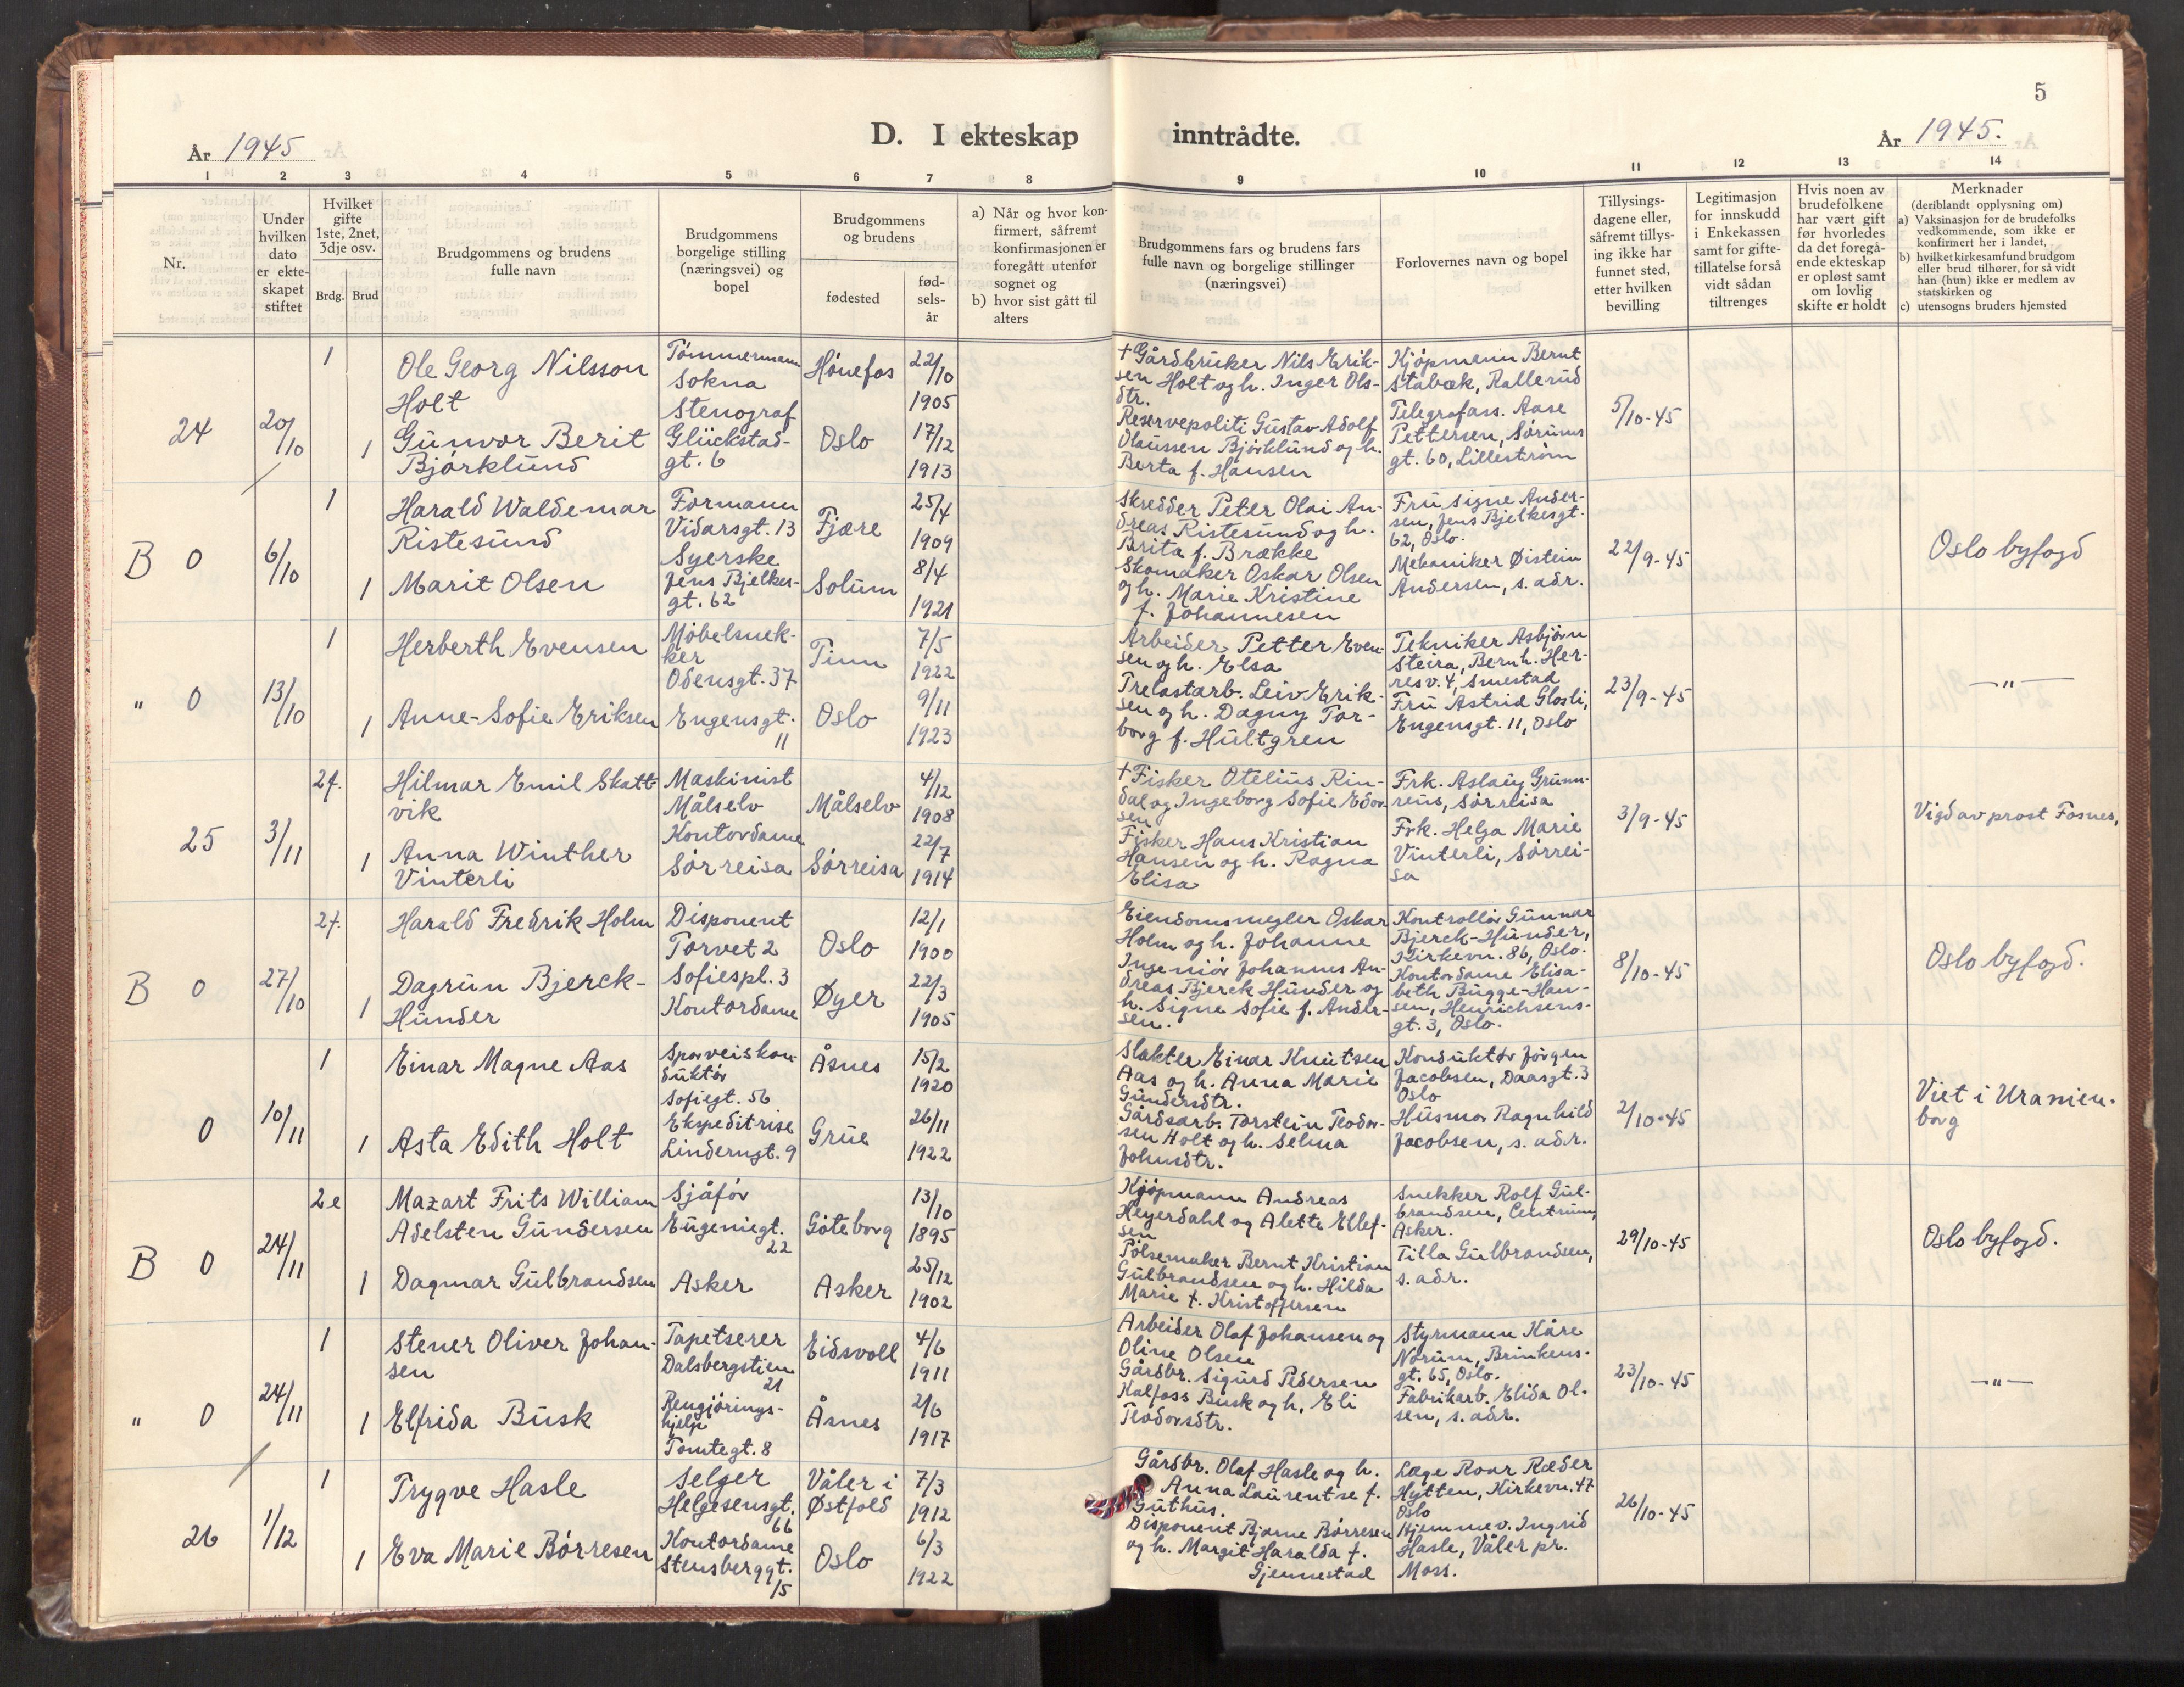 5
År 1945
D. I ekteskap inntrådte.
År 1945.
1 2 3 4 5 6 7 8 9 10 11 12 13 14
Nr.
Under
hvilken
dato
er ekte-
skapet
stiftet
Hvilket
gifte
1ste, 2net,
3dje osv.
Brdg. Brud
Brudgommens og brudens
fulle navn
Brudgommens
borgelige stilling
(næringsvei) og
bopel
Brudgommens
og brudens
fødested
fød-
sels-
år
a) Når og hvor kon-
firmert, såfremt
konfirmasjonen er
foregått utenfor
sognet og
b) hvor sist gått til
alters
Brudgommens fars og brudens fars
fulle navn og borgelige stillinger
(næringsvei)
Forlovernes navn og bopel
Tillysings-
dagene eller,
såfremt tillys-
ing ikke har
funnet sted,
etter hvilken
bevilling
Legitimasjon
for innskudd
i Enkekassen
samt for gifte-
tillatelse forså
vidt sådan
tiltrenges
Hvis noen av
brudefolkene
har vært gift
før hvorledes
da det foregå-
ende ekteskap
er opløst samt
om lovlig
skifte er holdt
Merknader
(deriblandt opplysning om)
a) Vaksinasjon for de brudefolks
vedkommende, som ikke er
konfirmert her i landet,
b) hvilket kirkesamfund brudgom
eller brud tilhører, for så vidt
han (hun) ikke er medlem av
statskirken og
c) utensogns bruders hjemsted
24
20/10
1
Ole Georg Nilsson
Holt
Tömmermann
Sokna
Hönefos
22/10
1905
1
Gunvor Berit
Björklund
Stenograf
Glückstad-
gt. 6
Oslo
17/12
1913
+ Gårdbruker Nils Erik-
sen Holt og h. Inger Ols-
dtr.
Reservepoliti Gustav Adolf
Olaussen Björklund og h.
Berta f. Hansen
Kjöpmann Bernt
Stabæk, Rallerud
Telegrafass. Aase
Pettersen, Sörums
gt. 60, Lilleström
5/10-45
B 0
6/10
1
Harald Waldemar
Ristesund
Formann
Vidarsgt. 13
Fjære
25/4
1909
1
Marit Olsen
Syerske
Jens Bjelkes-
gt. 62
Solum
8/4
1921
Skredder Peter Olai An-
dreas Ristesund og h.
Brita f. Brække
Skomaker Oskar Olsen
og h. Marie Kristine
f. Johannesen
Fru Signe Ander-
sen, Jens Bjelkesgt.
62, Oslo.
Mekaniker Øistein
Andersen, s. adr.
22/9-45
Oslo byfogd
" 0
13/10
1
Herberth Evensen
Möbelsnek-
ker
Odensgt. 37
Tinn
7/5
1922
1
Anne-Sofie Eriksen
Engensgt.
11
Oslo
9/11
1923
Arbeider Petter Even-
sen og h. Elsa
Trelastarb. Leiv Erik-
sen og h. Dagny Tor-
borg f. Hultgren
Tekniker Asbjörn
Steira, Bernh. Her-
resv. 4, Smestad
Fru Astrid Glosli,
Engensgt. 11, Oslo
23/9-45
—"—
25
3/11
2f.
Hilmar Emil Skatt-
vik
Maskinist
Målselv
Målselv
4/12
1908
1
Anna Winther
Vinterli
Kontordame
Sörreisa
Sörreisa
22/7
1914
+ Fisker Otelius Rin-
dal og Ingeborg Sofie Edvar
sen
Fisker Hans Kristian
Hansen og h. Ragna
Elisa
Frk. Aslaug Grunn-
reus, Sörreisa
Frk. Helga Marie
Vinterli, Sörrei-
sa
3/9-45
Vigd av prost Fosnes,
B 0
27/10
2f.
Harald Fredrik Holm
Disponent
Torvet 2
Oslo
12/1
1900
1
Dagrun Bjerck-
Hunder
Sofiespl. 3
Kontordame
Øyer
22/3
1905
Eiendomsmegler Oskar
Holm og h. Johanne
Ingeniör Johannes An-
dreas Bjerck Hunder og
h. Signe Sofie f. Ander-
sen.
Kontrollör Gunnar
Bjerck-Hunder,
Kirkevn. 86, Oslo.
Kontordame Elisa-
beth Bugge-Han-
sen, Henrichsens-
gt. 3, Oslo.
8/10-45
Oslo byfogd.
0
10/11
1
Einar Magne Aas
Sporveiskon-
duktör
Sofiegt. 56
Åsnes
15/2
1920
1
Asta Edith Holt
Ekspeditrise
Linderngt. 9
Grue
26/11
1922
Slakter Einar Knutsen
Aas og h. Anna Marie
Gundersdtr.
Gårdsarb. Torstein Teodor-
sen Holt og h. Selma
Johnsdtr.
Konduktör Jörgen
Jacobsen, Daasgt. 3
Oslo
Husmor Ragnhild
Jacobsen, s. adr.
2/10-45
Viet i Uranien-
borg
B 0
24/11
2e
Mazart Frits William
Adelsten Gundersen
Sjåför
Eugeniegt.
22
Göteborg
13/10
1895
1
Dagmar Gulbrandsen
Asker
Asker
25/12
1902
Kjöpmann Andreas
Heyerdahl og Alette Ellef-
sen
Pölsemaker Bernt Kristian
Gulbrandsen og h. Hilda
Marie f. Kristoffersen
Snekker Rolf Gul-
brandsen, Centrum,
Asker.
Tilla Gulbrandsen,
s. adr.
29/10-45
Oslo byfogd.
" 0
24/11
1
Stener Oliver Johan-
sen
Tapetserer
Dalsbergstien
21
Eidsvoll
4/6
1911
1
Elfrida Busk
Rengjörings-
hjelp
Tomtegt. 8
Åsnes
2/6
1917
Arbeider Olaf Johansen og
Oline Olsen
Gårdbr. Sigurd Pedersen
Kalfoss Busk og h. Eli
Teodorsdtr.
Styrmann Kåre
Norum, Brinkens-
gt. 65, Oslo.
Fabrikarb. Elida Ol-
sen, s. adr.
23/10-45
—"—
26
1/12
1
Trygve Hasle
Selger
Helgesensgt.
66
Våler i
Østfold
7/3
1912
1
Eva Marie Börresen
Kontordame
Stensberggt.
15
Oslo
6/3
1922
Gårdbr. Olaf Hasle og h.
Anna Laurentse f.
Guthus.
Disponent Bjarne Börresen
og h. Margit Haralda f.
Gjennestad
Læge Roar Ræder
Hytten, Kirkevn. 47
Oslo
Hjemmev. Ingrid
Hasle, Våler pr.
Moss.
26/10-45